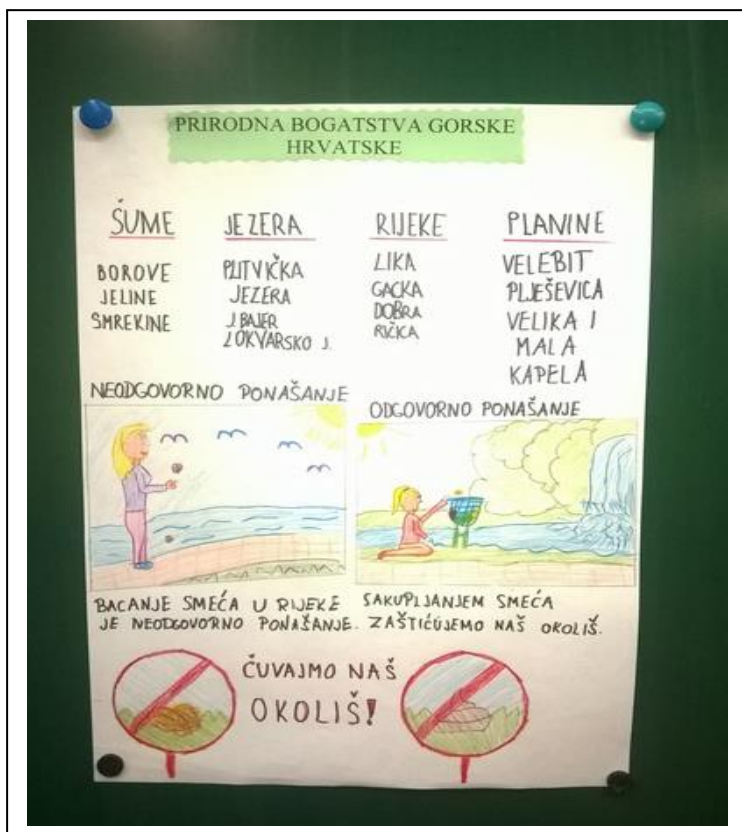 PRIRODNA BOGATSTVA GORSKE
HRVATSKE
ŠUME
BOROVE
JELINE
SMREKINE
JEZERA
PLITVIČKA
JEZERA
J. BAJER
LOKVARSKO J.
RIJEKE
LIKA
GACKA
DOBRA
RIČICA
PLANINE
VELEBIT
PLJEŠEVICA
VELIKA I
MALA
KAPELA
NEODGOVORNO PONAŠANJE
BACANJE SMEĆA U RIJEKE
JE NEODGOVORNO PONAŠANJE.
ODGOVORNO PONAŠANJE
SAKUPLJANJEM SMEĆA
ZAŠTIĆUJEMO NAŠ OKOLIŠ.
ČUVAJMO NAŠ
OKOLIŠ!